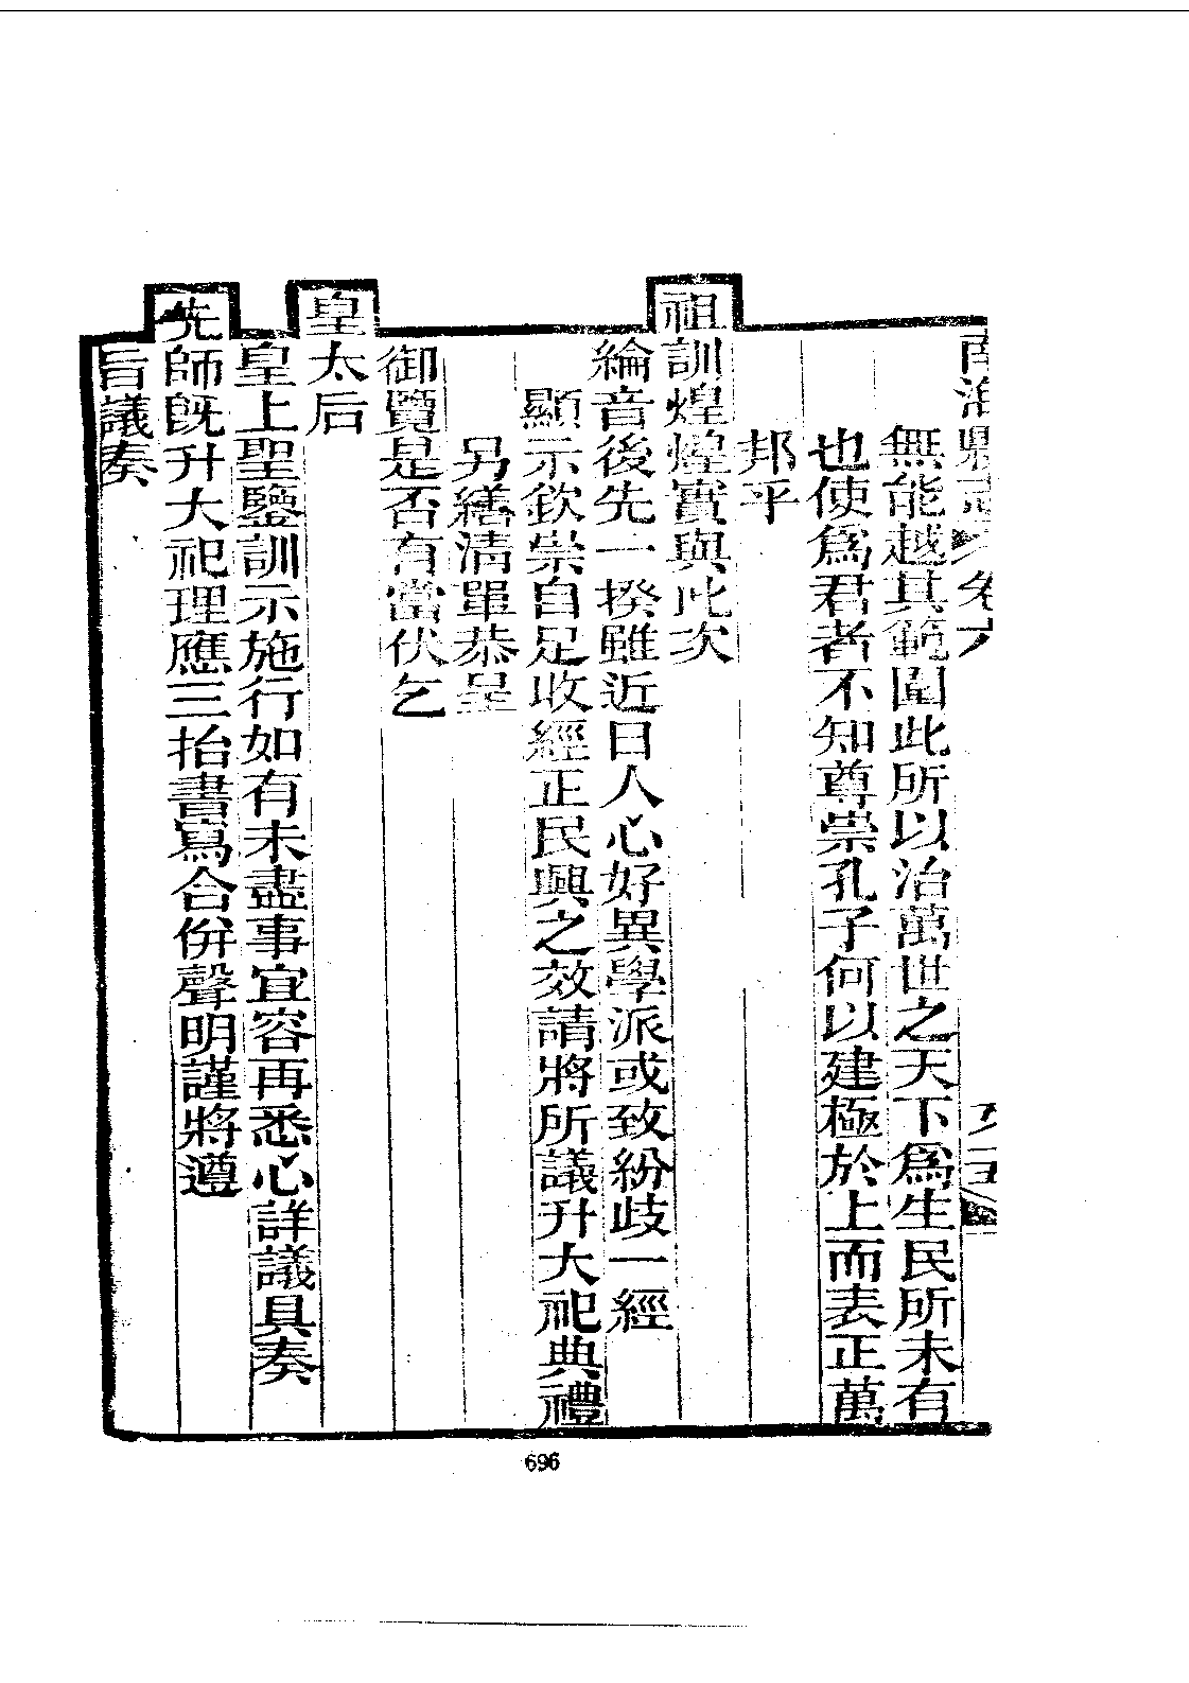 無能越其範圍此所以治萬世之天下爲生民所未有
也使爲君者不知尊崇孔子何以建極於上而表正萬
邦乎
祖訓煌煌實與此次
綸音後先一揆雖近日人心好異學派或致紛歧一經
顯示欽崇自足收經正民興之效請將所議升大祀典禮
另繕清單恭呈
御覽是否有當伏乞
皇太后
皇上聖鑒訓示施行如有未盡事宜容再悉心詳議具奏
先師旣升大祀理應三抬書寫合併聲明謹將遵
旨議奏
696